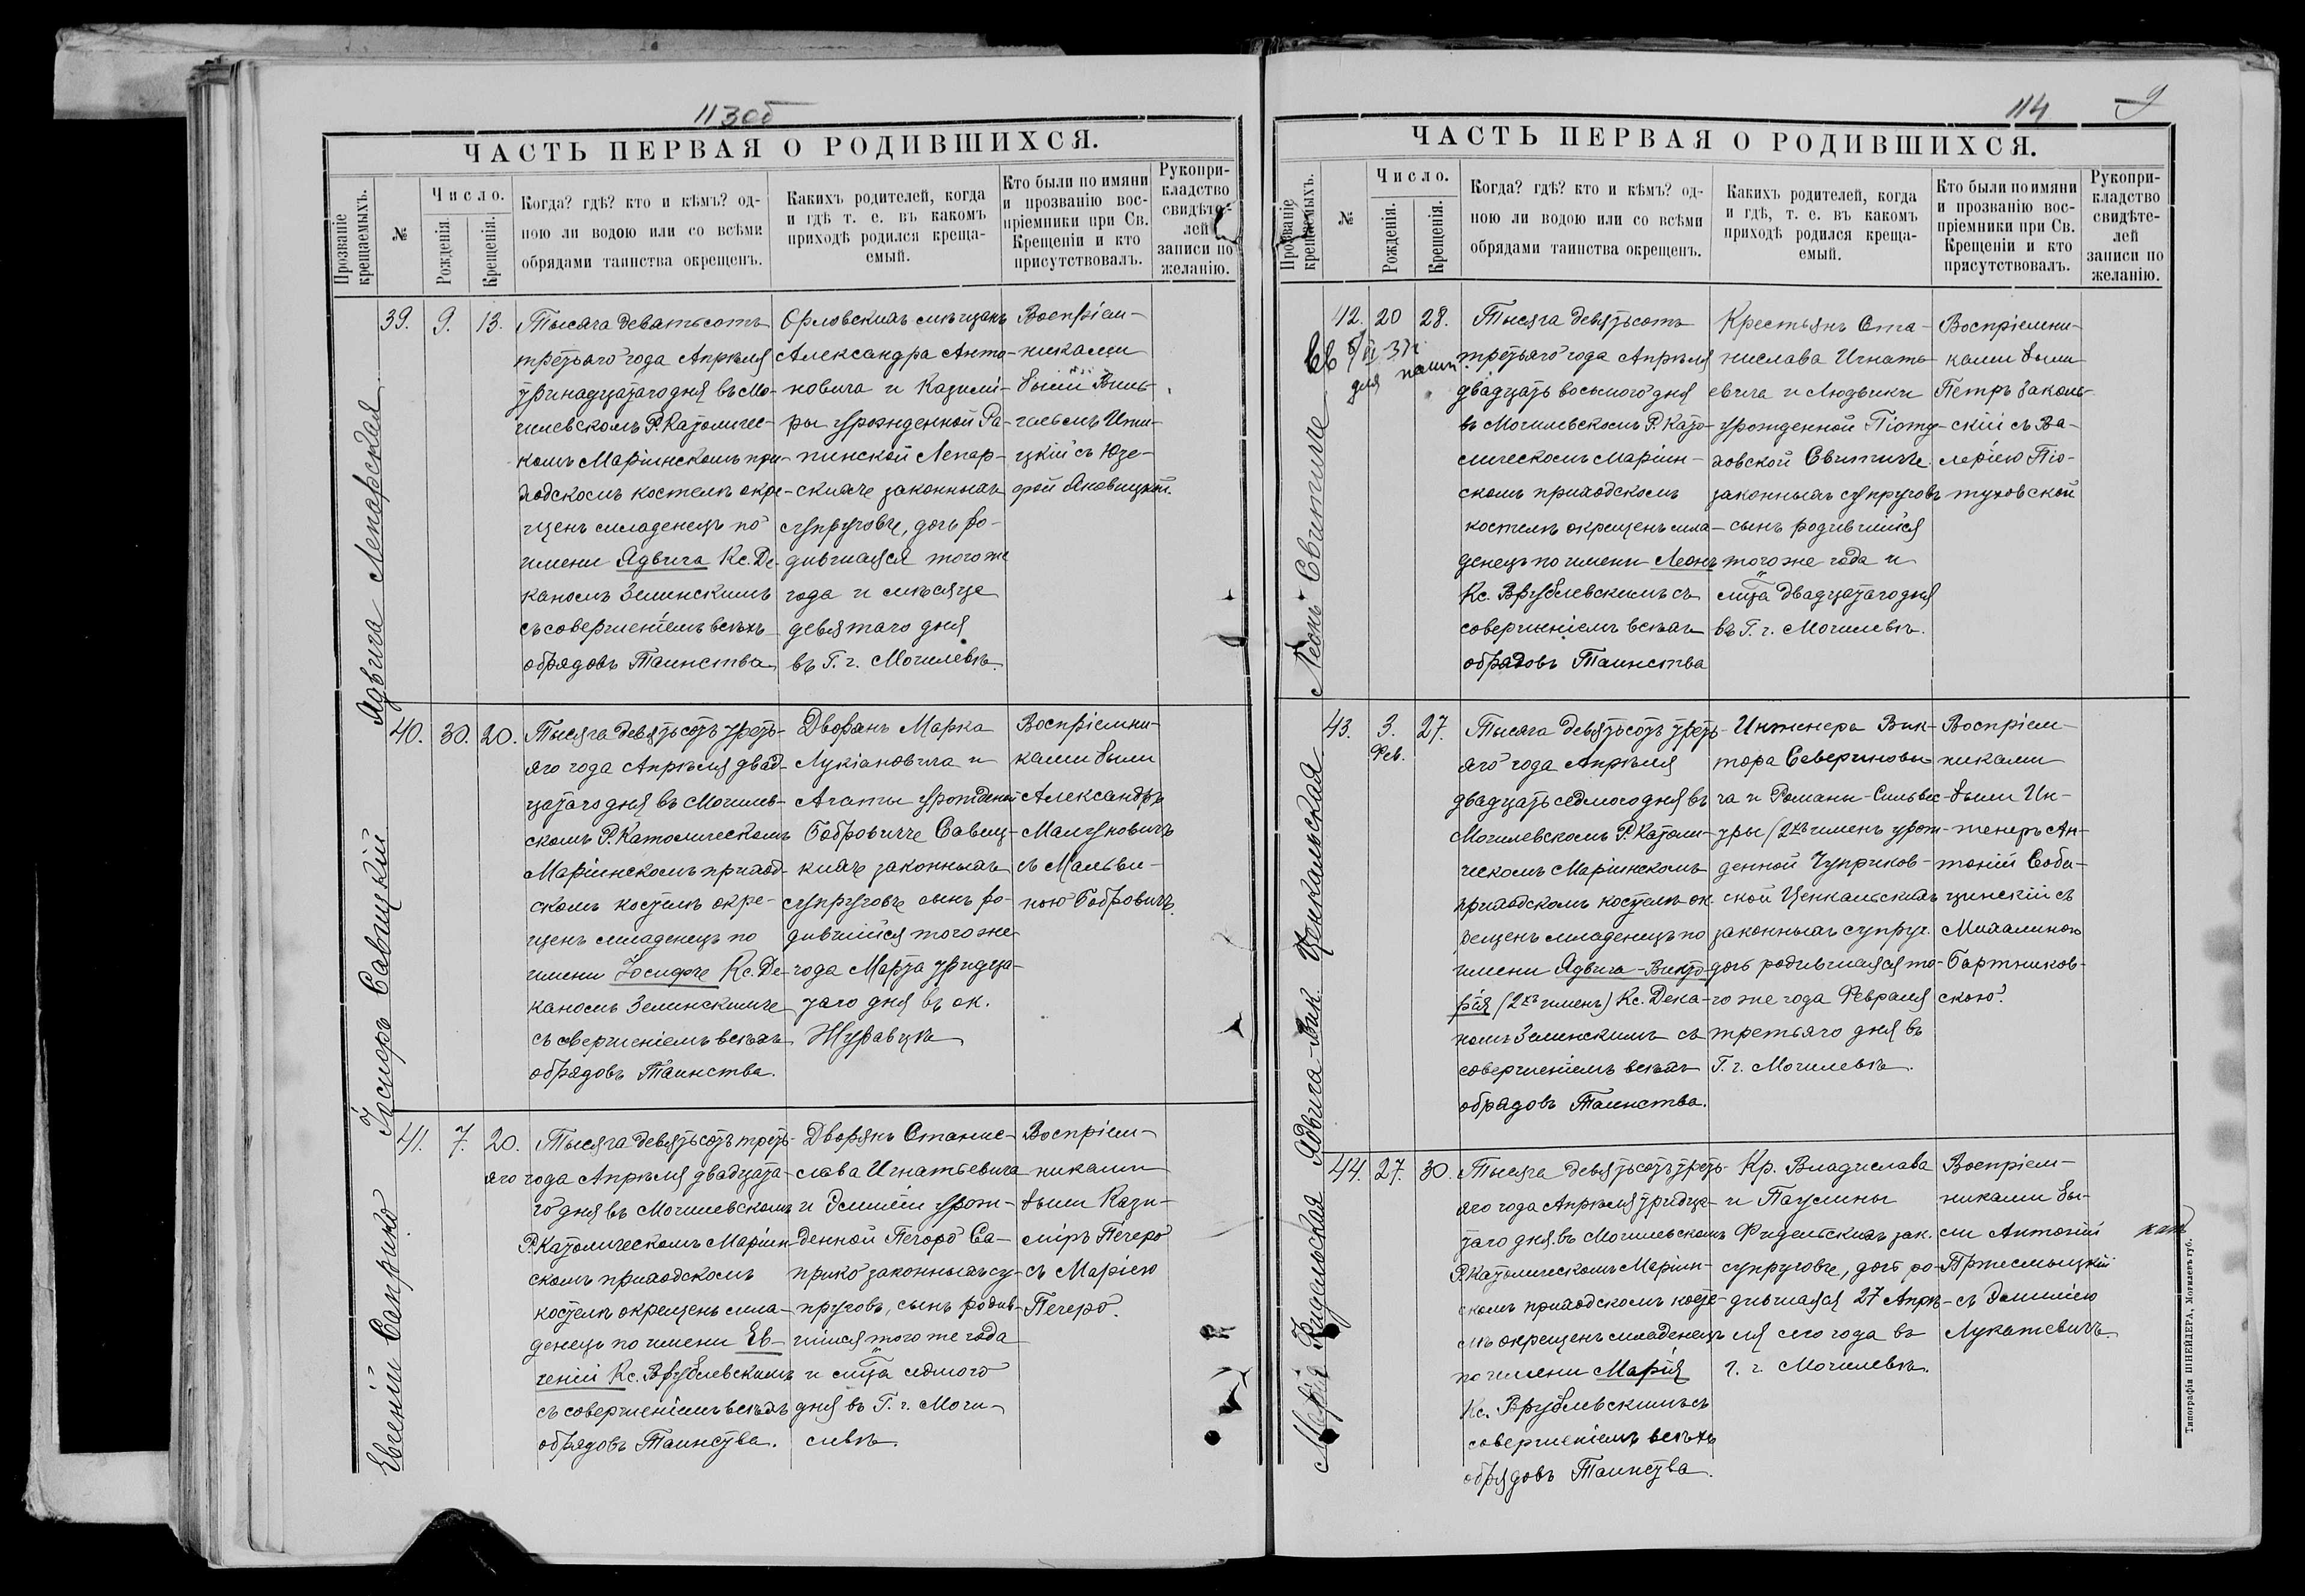 113об
ЧАСТЬ ПЕРВАЯ О РОДИВШИХСЯ.
Прозваніе крещаемыхъ.
№
Число.
Рожденія.
Крещенія.
Когда? гдѣ? кто и кѣмъ? од-
ною ли водою или со всѣми
обрядами таинства окрещенъ.
Какихъ родителей, когда
и гдѣ т. е. въ какомъ
приходѣ родился креща-
емый.
Кто были по имяни
и прозванію вос-
пріемники при Св.
Крещеніи и кто
присутствовалъ.
Рукопри-
кладство
свидѣте-
лей
записи по
желанію.
Ядвига Лепарская
39. 9. 13.
Тысяча деватьсотъ
третьяго года Апрѣля
тринадцатаго дня въ Мо-
гилевскомъ Р. Католичес-
комъ Маріинскомъ при-
ходскомъ костелѣ окре-
щенъ младенецъ по
имени Ядвига Кс. Де-
каномъ Зелинскимъ
съ совершеніемъ всѣхъ
обрядовъ Таинства
Орловскихъ мѣщанъ
Александра Анто-
новича и Казими-
ры урожденной Ра-
пинской Лепар-
скихъ законныхъ
супруговъ, дочь ро-
дившаяся того же
года и мѣсяца
девятаго дня
въ Г. г. Могилевѣ.
Воспріем-
никами
были Виль-
гельмъ Ити-
цкій съ Юзе-
фой Яновицкой.
Іосифъ Савицкій
40. 30. 20.
Тысяча девятьсотъ треть-
яго года Апрѣля двад-
цатаго дня въ Могилев-
скомъ Р. Католическомъ
Маріинскомъ приход-
скомъ костелѣ окре-
щенъ младенецъ по
имени Іосифъ Кс. Де-
каномъ Зелинскимъ
съ совершеніемъ всѣхъ
обрядовъ Таинства.
Дворянъ Марка
Лукіановича и
Агаты урожденной
Бобровичъ Савиц-
кихъ законныхъ
супруговъ сынъ ро-
дившійся того же
года Марта тридца-
таго дня въ ок.
Журавцѣ
Воспріемни-
ками были
Александръ
Малуновичъ
съ Мальви-
ною Бобровичъ.
Евгеній Саприко
41. 7. 20.
Тысяча девятьсотъ треть-
яго года Апрѣля двадцата-
го дня въ Могилевскомъ
Р. Католическомъ Маріин-
скомъ приходскомъ
костелѣ окрещенъ мла-
денецъ по имени Ев-
геній Кс. Врублевскимъ
съ совершеніемъ всѣхъ
обрядовъ Таинства.
Дворянъ Станис-
лава Игнатьевича
и Эмиліи урож-
денной Печоро Са-
прико законныхъ су-
пруговъ, сынъ родив-
шійся того же года
и мца седмого
дня въ Г. г. Моги-
левѣ.
Воспріем-
никами
были Кази-
міръ Печеро
съ Маріею
Печеро.
114 9
ЧАСТЬ ПЕРВАЯ О РОДИВШИХСЯ.
Прозваніе крещаемыхъ.
№
Число.
Рожденія.
Крещенія.
Когда? гдѣ? кто и кѣмъ? од-
ною ли водою или со всѣми
обрядами таинства окрещенъ.
Какихъ родителей, когда
и гдѣ, т. е. въ какомъ
приходѣ родился креща-
емый.
Кто были по имяни
и прозванію вос-
пріемники при Св.
Крещеніи и кто
присутствовалъ.
Рукопри-
кладство
свидѣте-
лей
записи по
желанію.
Леонъ Свитиче
42. 20 28.
Св 5/VI 37г
для
Тысяча девятьсотъ
третьяго года Апрѣля
двадцать восьмого дня
въ Могилевскомъ Р. Като-
лическомъ Маріин-
скомъ приходскомъ
костелѣ окрещенъ мла-
денецъ по имени Леонъ
Кс. Врублевскимъ съ
совершеніемъ всѣхъ
обрядовъ Таинства
Крестьянъ Ста-
нислава Игнать-
евича и Людвики
урожденной Піоту-
ховской Свитиче
законныхъ супруговъ
сынъ родившійся
того же года и
мца двадцатаго дня
въ Г. г. Могилевѣ.
Воспріемни-
ками были
Петръ Заколь-
скій съ Ва-
леріею Піо-
туховской
Ядвига-Вик. Ценкальская
43. 3. 27.
Фев.
Тысяча девятьсотъ треть-
яго года Апрѣля
двадцать седмого дня въ
Могилевскомъ Р. Католи-
ческомъ Маріинскомъ
приходскомъ костелѣ ок-
рещенъ младенецъ по
имени Ядвига-Викто-
рія (2хъ именъ) Кс. Дека-
номъ Зелинскимъ съ
совершеніемъ всѣхъ
обрядовъ Таинства.
Инженера Вик-
тора Северинови-
ча и Романы-Сильвес-
тры (2хъ именъ) урож-
денной Чуприков-
ской Ценкальскихъ
законныхъ супруг.
дочь родившаяся то-
го же года Февраля
третьяго дня въ
Г. г. Могилевѣ.
Воспріем-
никами
были Ин-
женеръ Ан-
тоній Соби-
щинскій съ
Михалиною
Бартников-
скою.
Марія Фидельская
44. 27. 30.
Тысяча девятьсотъ треть-
яго года Апрѣля тридца-
таго дня въ Могилевскомъ
Р. Католическомъ Маріин-
скомъ приходскомъ косте-
лѣ окрещенъ младенецъ
по имени Марія
Кс. Врублевскимъ съ
совершеніемъ всѣхъ
обрядовъ Таинства.
Кр. Владислава
и Паулины
Фидельскихъ зак.
супруговъ, дочь ро-
дившаяся 27 Апрѣ-
ля сего года въ
Г. г. Могилевѣ.
Воспріем-
никами бы-
ли Антоній
Пржесмыцкій
съ Эмиліею
Лукашевичъ.
Типографія ШНЕЙДЕРА, Могилевъ губ.